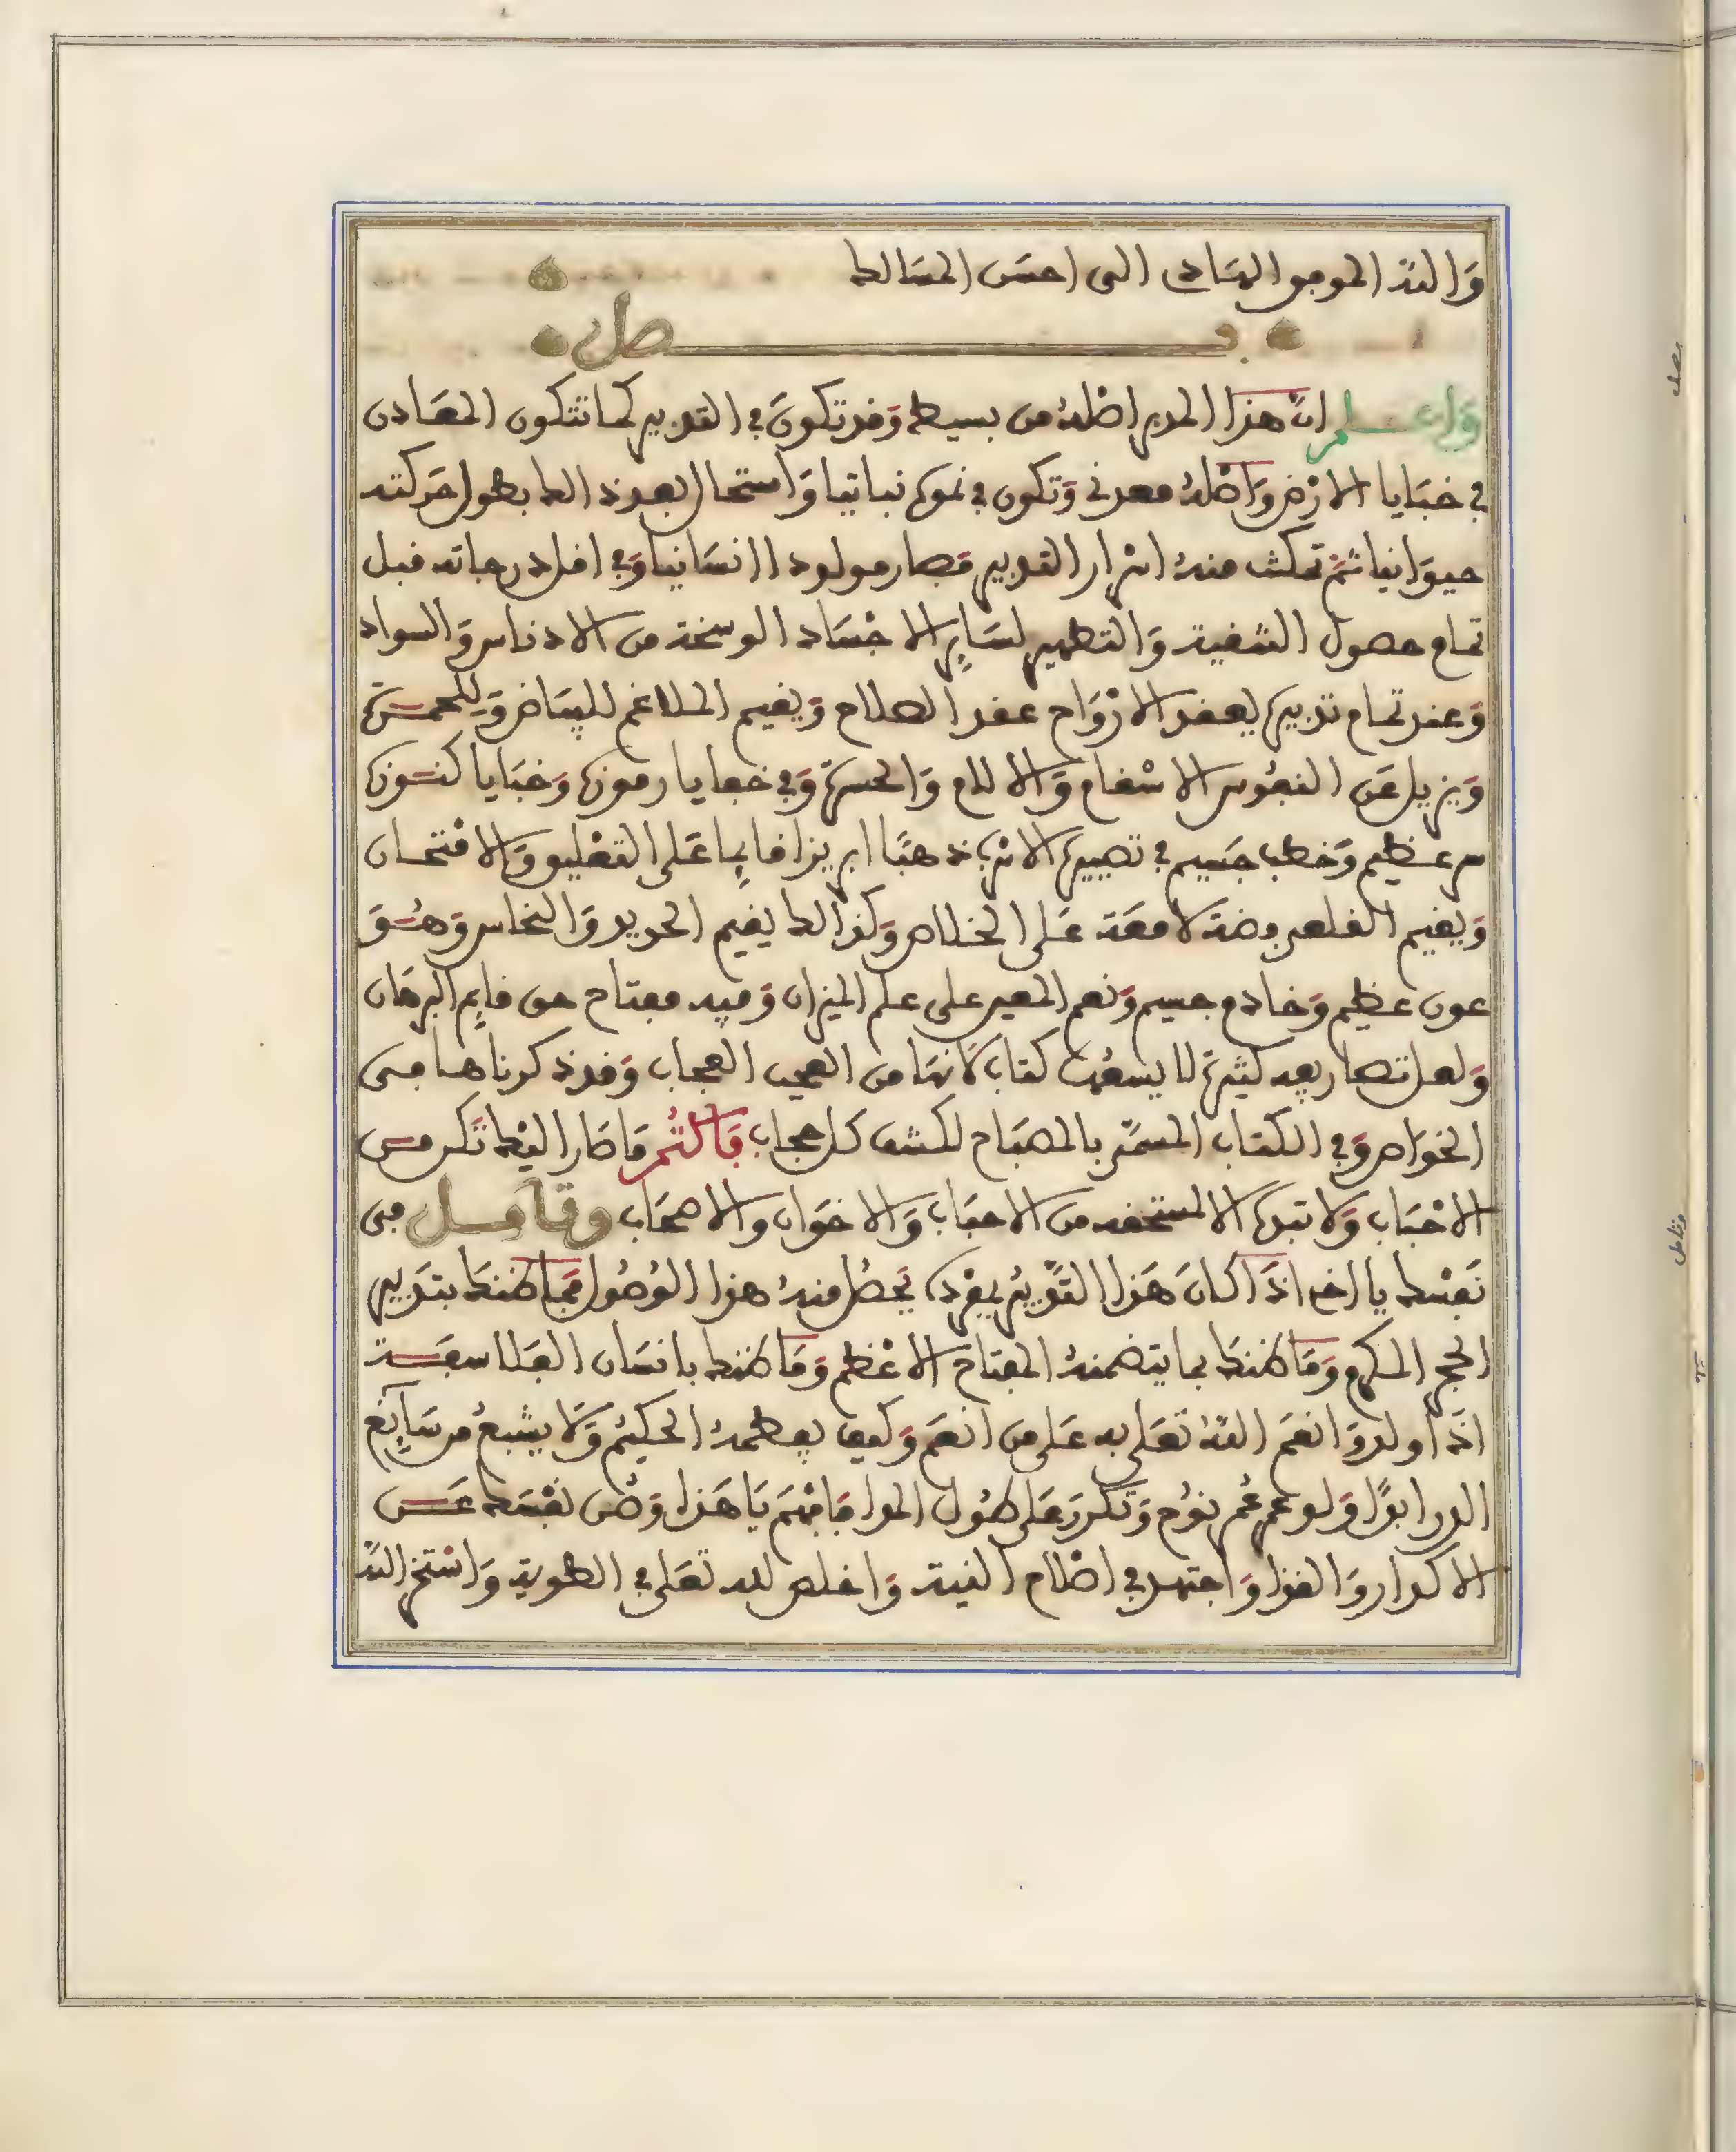 وَاللّه الموفق الهَادي الى احسَن المسَالك
فصل
وَاعلم انّ هذا المدبر اصْلهُ من بسيط وَقد تكونَ في التدبير كما تتكون المعَادن
في خبَايا الارْض وَاصْلهُ معدني وَتكون في نموه نباتيا وَاستحال بعد ذالك بطول حَركته
حيوَانيا ثمّ تمكنت منهُ اسْرار التدبير فصار مولودا انسَانيا وَفي اقل درجاته قبل
تمام حصول التنقية وَالتطهير لسَايِر الاجْسَاد الوسخة من الادناس وَالسواد
وَعند تمام تدبيره يعقد الارْوَاح عقد الصلاح وَيقيم الملاغم للبيَاض وَللحمرة
وَيزيل عَن النفُوس الاسْقام وَالالام وَالحسرة وَفي خفايا رموزه وَخبَايا كنوزه
سر عظيم وَخطب جَسيم في تصييره الاسْرب ذهبًا ابريزا قايِما عَلى التعْليق وَالامْتحان
وَيقيم القلعي فضة لامعَة عَلى الخلاص وَكذالك يقيم الحديد وَالنحاس وَهُوَ
عون عظيم وَخادم جسيم وَنعم المعين على علم الميزان وَفيه مفتاح حق قايِم البرهَان
وَله تصاريف كثيرة لا يسعُهَا كتاب لانهَا من العجب العجاب وَقد ذكرناها في
الخوَاص وَفي الكتاب المسمَّى بالمصبَاح لكشف كل حجاب فَاكْتُم مَا صَار اليْك تكن من
الاحْبَاب وَلا تبده الا لمستحقه من الاحبَاب وَالاخوَان والاصحَاب وتامل في
نَفسْك يا اخي اذَا كانَ هَذا التدْبيُر بمفرده يَحصُل منهُ هذا الوُصُول فمَا ظنك بتدبير
الحجر المكرم وَمَا ظنك بما يتضمنهُ المفتاح الاعْظم وَمَا ظنك بانسَان الفلاسفة
اذَا ولد وَانعَم اللّهُ تعَلى به عَلى من انعَم وَكيف يفطمهُ الحكيُم وَلا يشبعُ من سَايِغ
الدر ابدًا وَلو عمر عُمر نوُح وَتكررَ عَلى طُول المدا فَافْهَم يَا هَذا وَصُن نفْسَك عَن
الاكدار وَالقذا وَاجتهد في اصْلاح النية وَاخلص لله تعَلى في الطوية وَاسْتخر اللّه
فصل
وتامل